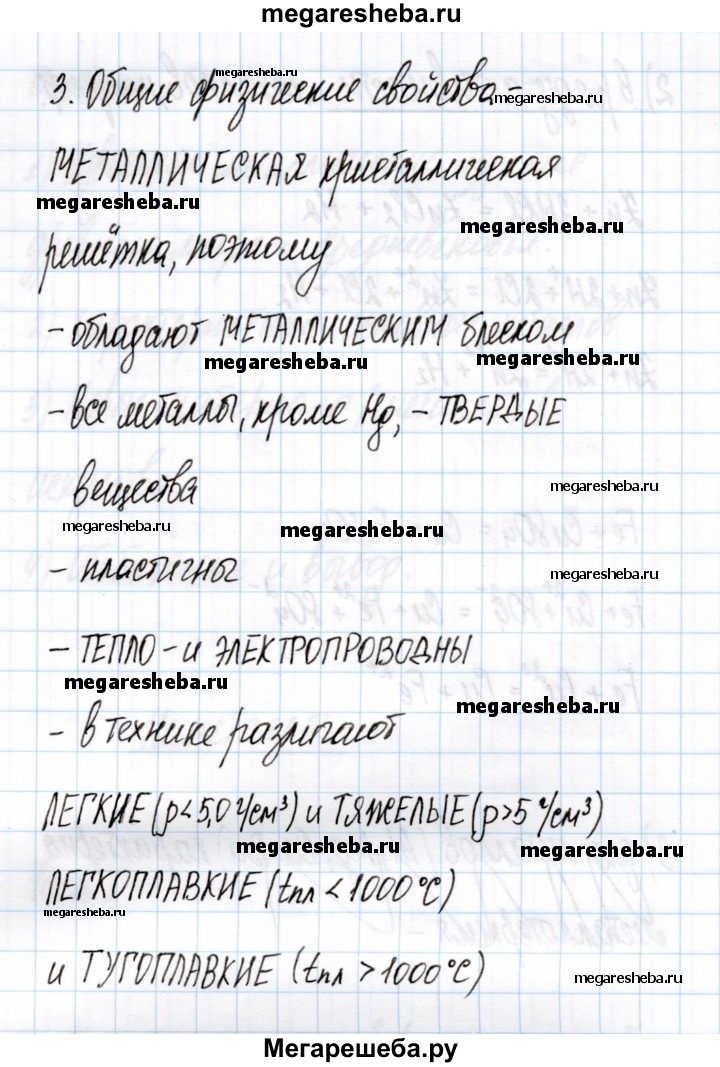 megaresheba.ru
3. Общие физические свойства -
megaresheba.ru
megaresheba.ru
МЕТАЛЛИЧЕСКАЯ кристаллическая
megaresheba.ru
megaresheba.ru
решётка, поэтому
- обладают МЕТАЛЛИЧЕСКИМ блеском
megaresheba.ru
megaresheba.ru
- все металлы, кроме Hg, - ТВЕРДЫЕ
вещества
megaresheba.ru
megaresheba.ru
megaresheba.ru
- пластичны
megaresheba.ru
- ТЕПЛО - и ЭЛЕКТРОПРОВОДНЫ
megaresheba.ru
megaresheba.ru
- в технике различают
ЛЕГКИЕ (ρ < 5,0 г/см³) и ТЯЖЕЛЫЕ (ρ > 5 г/см³)
megaresheba.ru
megaresheba.ru
ЛЕГКОПЛАВКИЕ (tпл < 1000 °C)
megaresheba.ru
и ТУГОПЛАВКИЕ (tпл > 1000 °C)
megaresheba.ru
Мегарешеба.ру